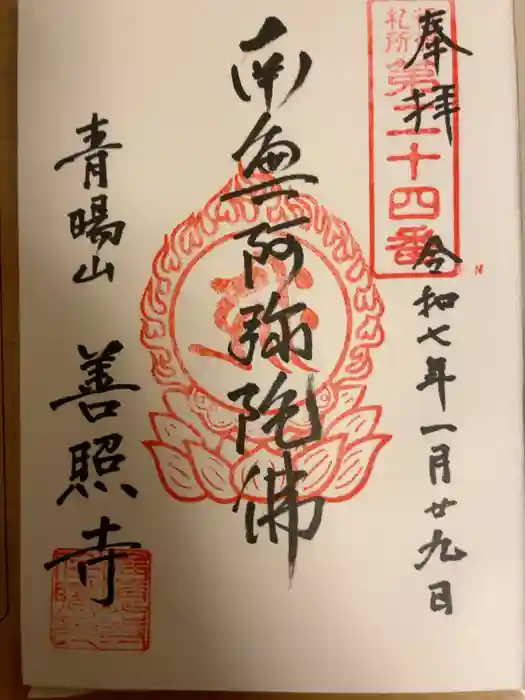 奉拝
札所
第二十四番
令和七年一月廿九日
南無阿弥陀佛
青暘山
善照寺